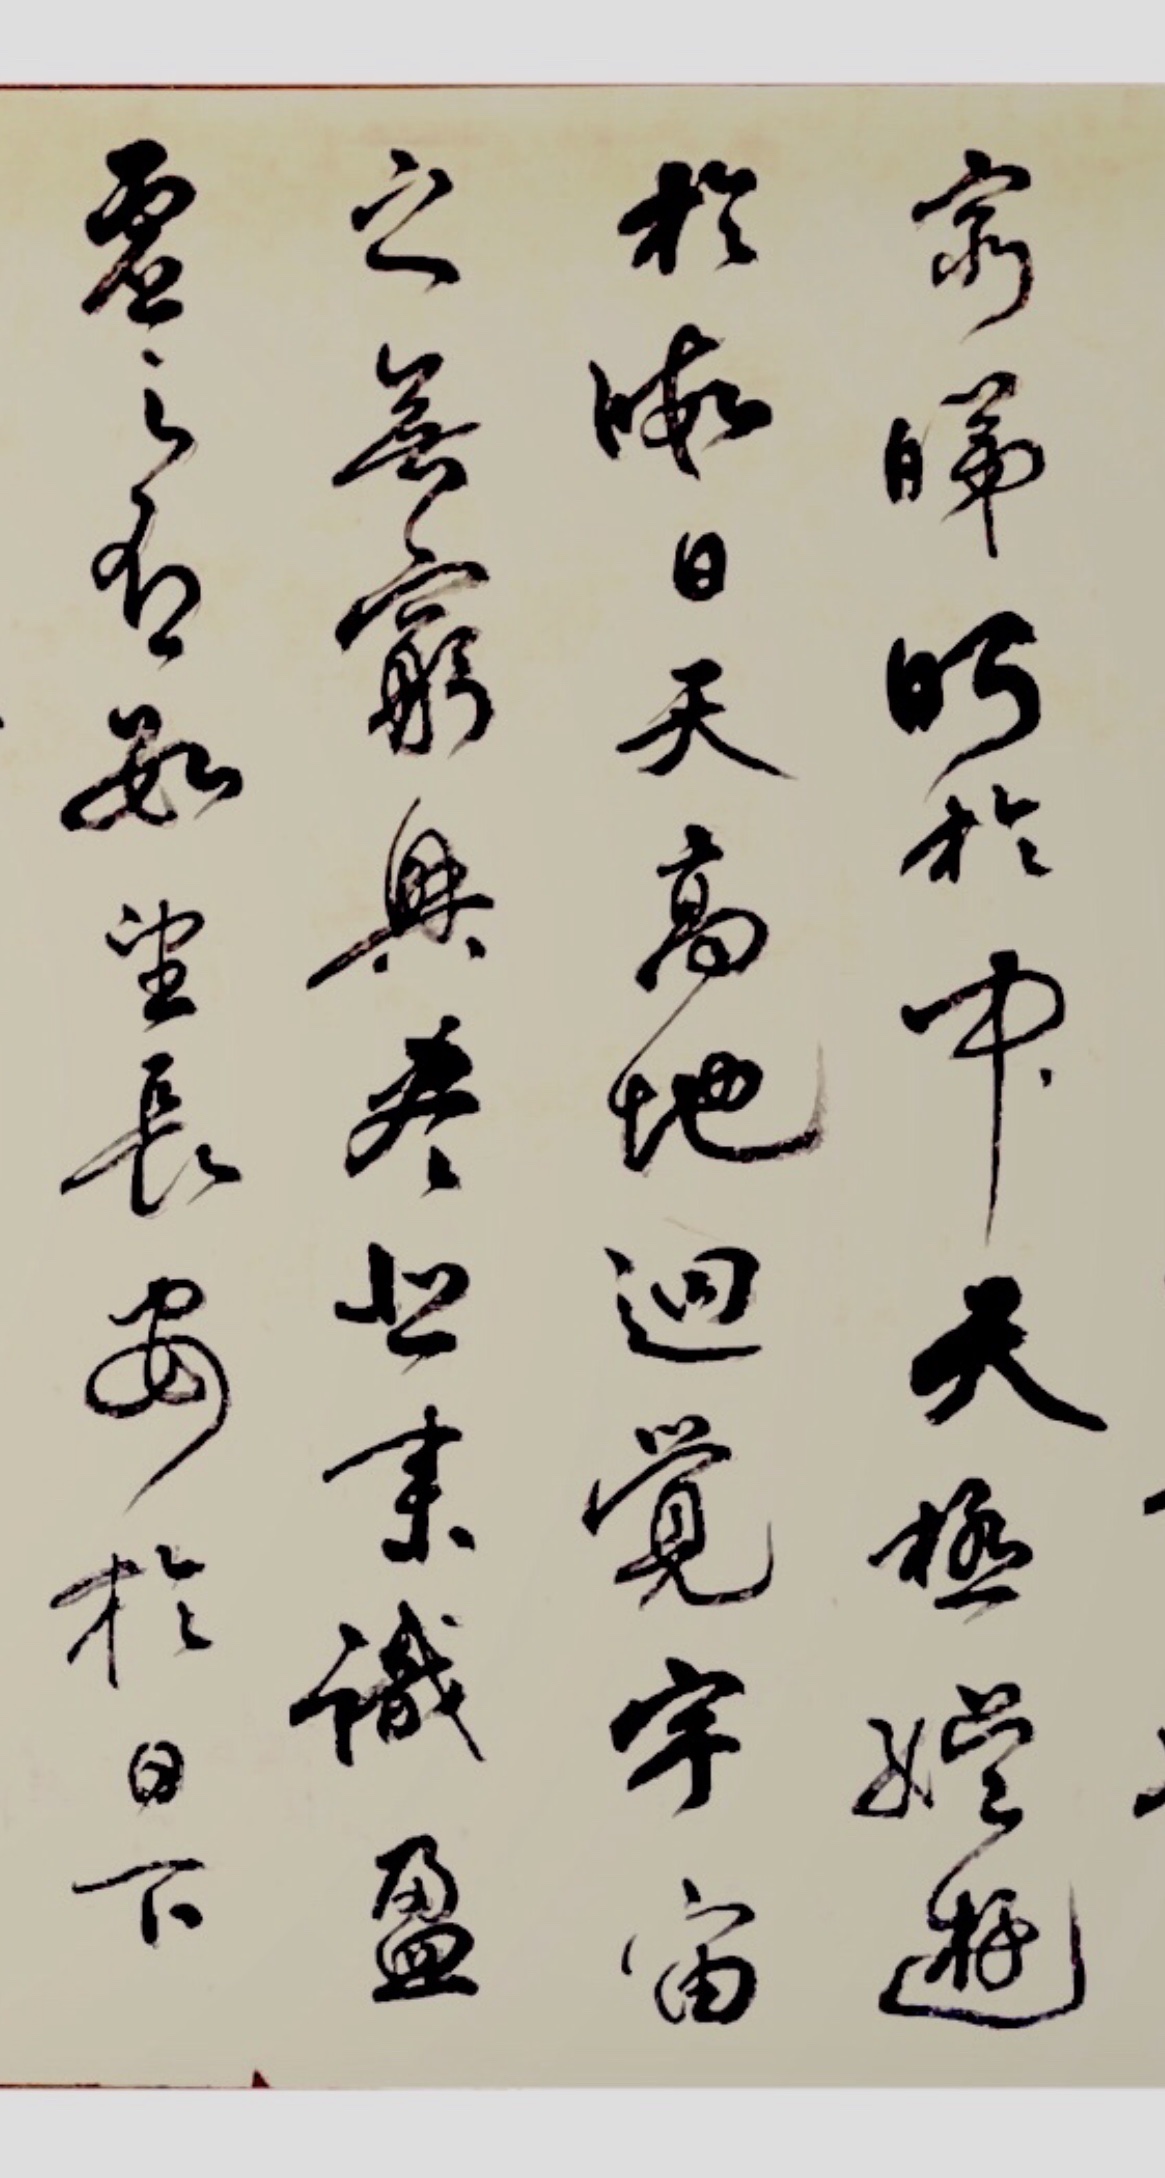 窮睇眄於中天極娛遊
於暇日天高地迥覺宇宙
之無窮興盡悲來識盈
虛之有數望長安於日下